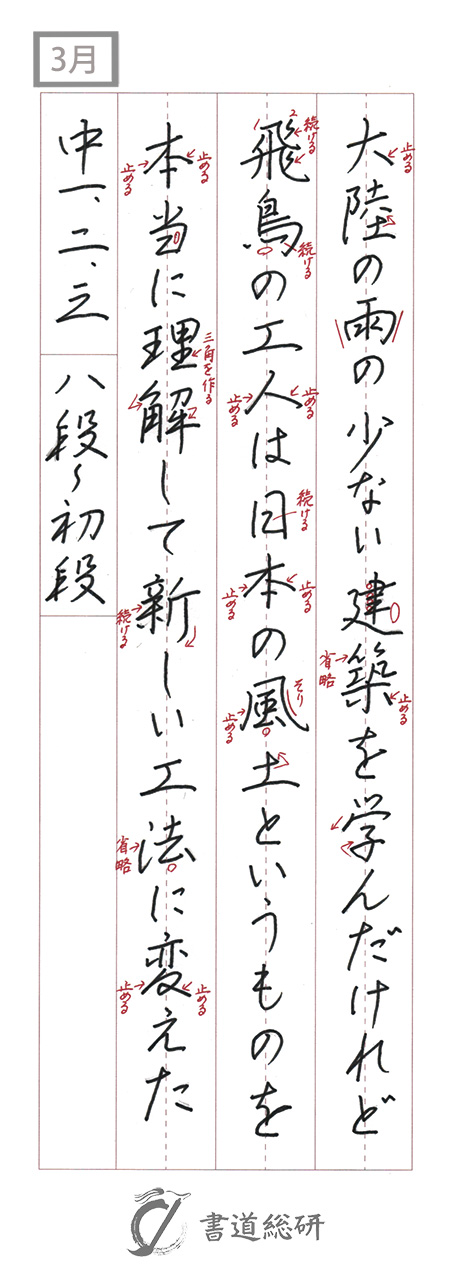 3月
大陸の雨の少ない建築を学んだけれど
止める
省略
止める
飛鳥の工人は日本の風土というものを
1
2
続ける
続ける
止める
止める
続ける
止める
止める
そり
止める
本当に理解して新しい工法に変えた
止める
止める
三角を作る
続ける
省略
止める
止める
中一、二、三
八段〜初段
書道総研